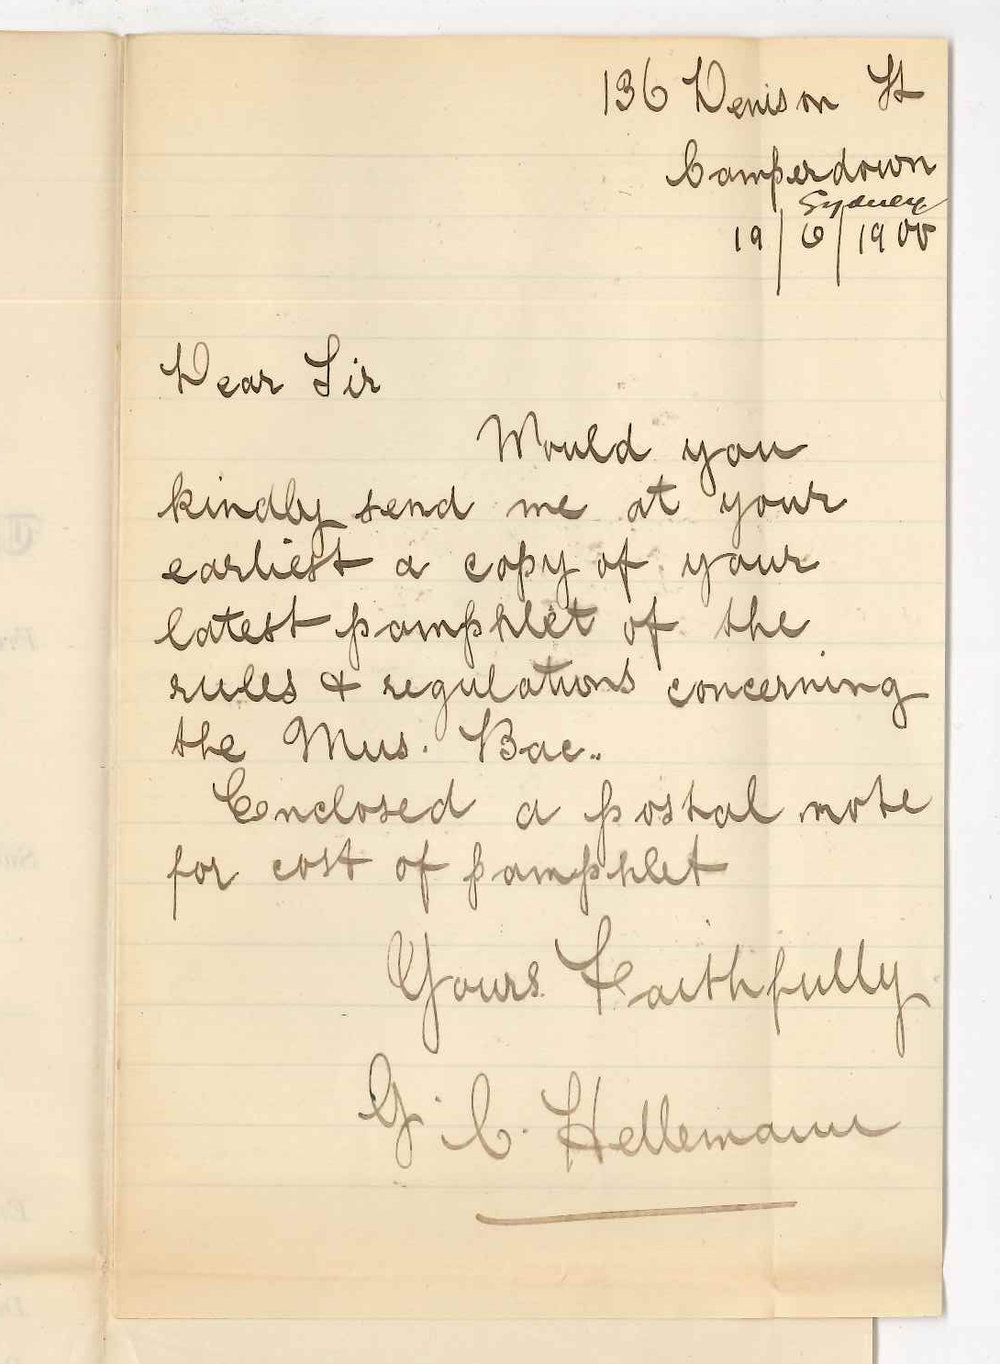 136 Denison St
Camperdown
Sydney
19/6/1900
Dear Sir
Would you
kindly send me at your
earliest a copy of your
latest pamphlet of the
rules & regulations concerning
the Mus. Bac..
Enclosed a postal note
for cost of pamphlet
Yours Faithfully
G. C. Hellemann